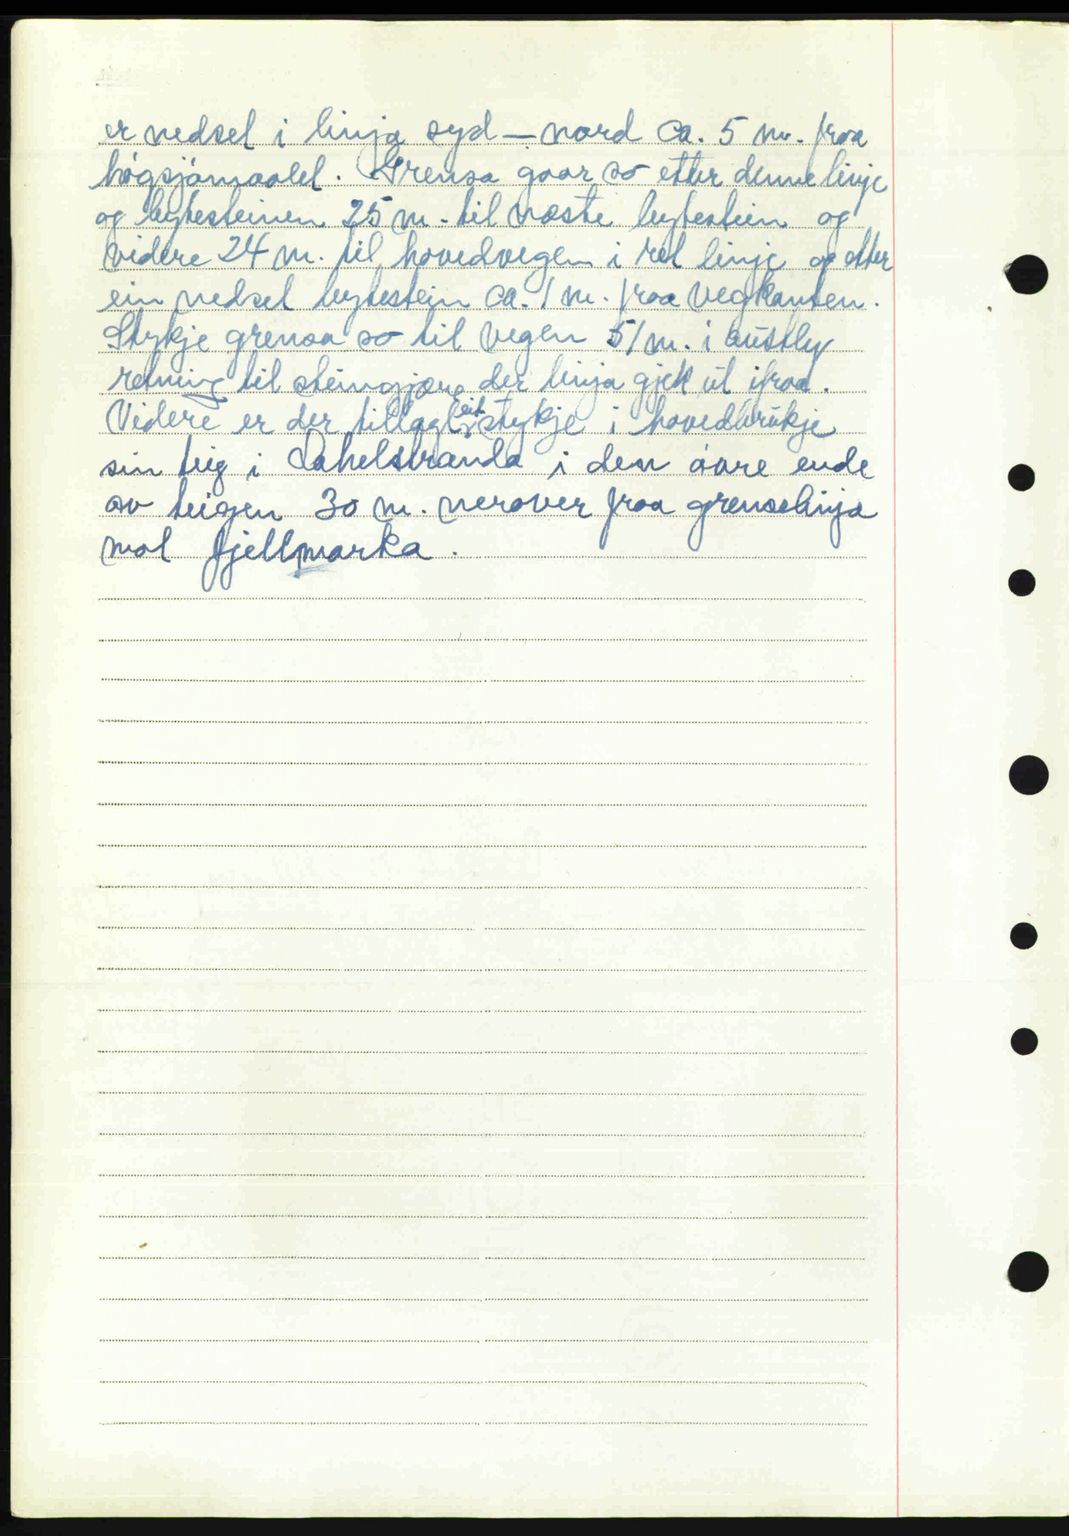 er nedsel i linja syd – nord ca. 5 m. fraa
högsjömaalet. Grensa gaar so etter denne linje
og bytesteinen 25 m. til næste bytestein og
videre 24 m. til hovedvegen i ret linje og etter
ein nedsel bytestein ca. 1 m. fraa vegkanten.
Stykje grensa so til vegen 51 m. i austleg
retning til steingjære der linja gjek ut ifraa.
Videre er der tillagt eit stykje i hovedbrukje
sin teig i i den övre ende
av teigen 30 m. nerover fraa grenselinja
mot fjellmarka.